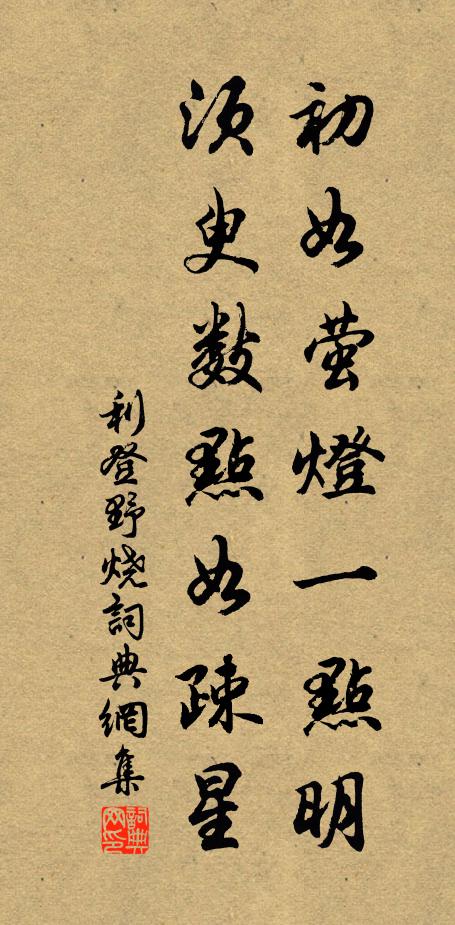 初如萤燈一點明
須臾數點如疎星
利登野烧詞典網集
詞典网印